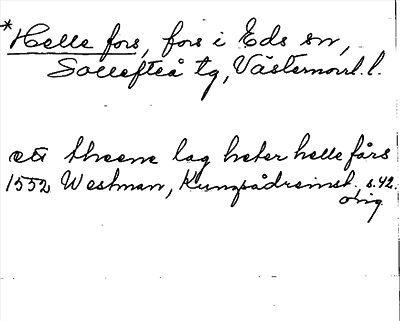 *Helle fors, fors i Eds sn,
Sollefteå tg, Västernorrl. l.
ett theene lag heter helle fårs
1552 Westman, Kungsådreinst, s. 42.
orig